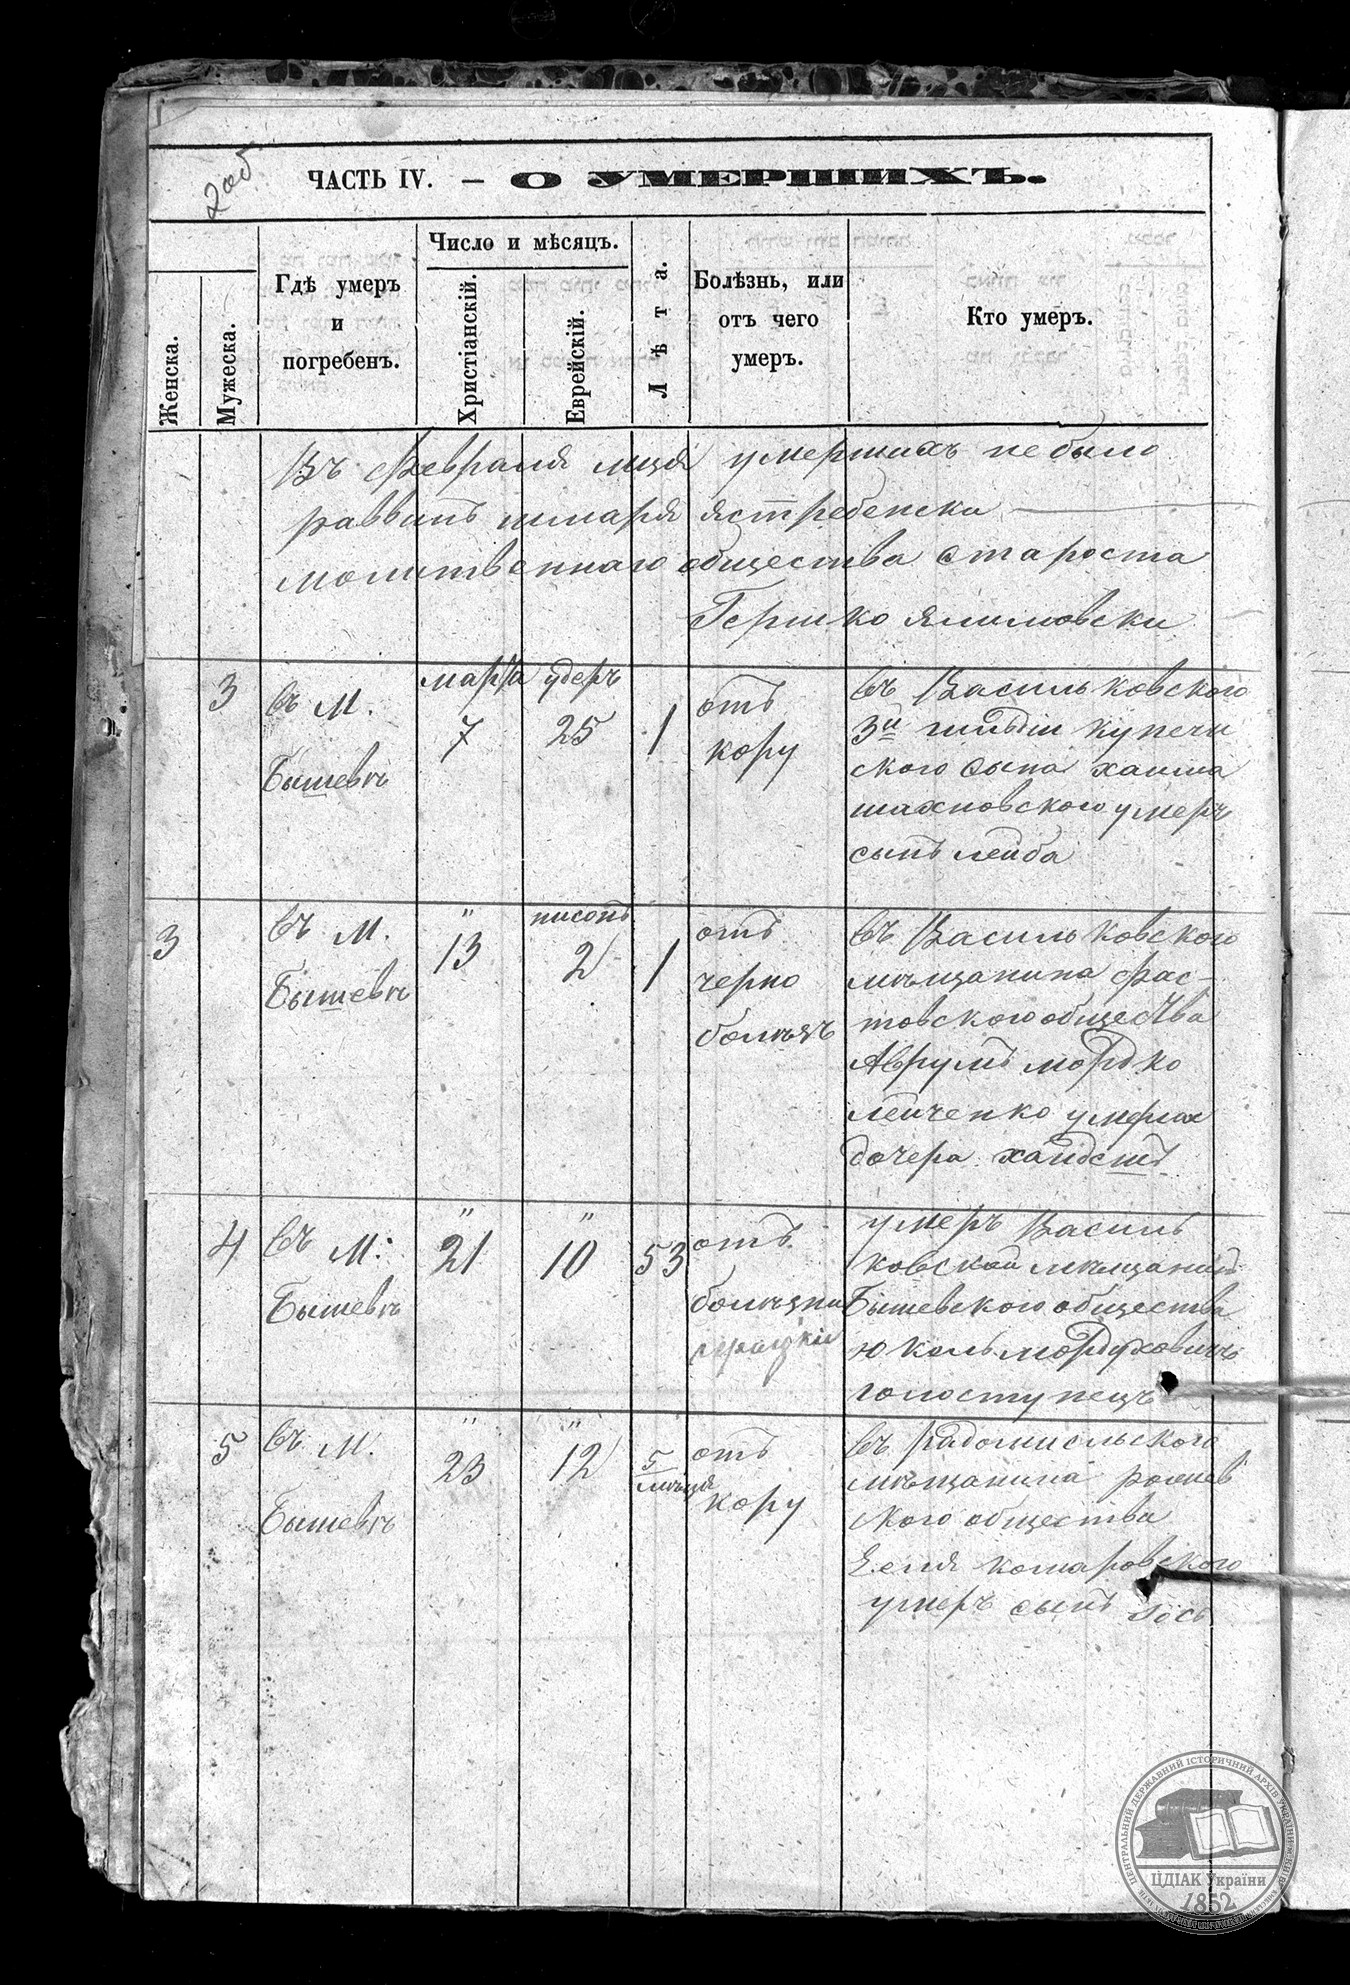 2об
ЧАСТЬ IV. — О УМЕРШИХЪ.
Женска.
Мужеска.
Гдѣ умеръ
и
погребенъ.
Число и мѣсяцъ.
Христіанскій.
Еврейскій.
Лѣта.
Болѣзнь, или
отъ чего
умеръ.
Кто умеръ.
Въ Февраля мця умершихъ небыло
раввинъ шмаря ястребенски
молитвеннаго общества староста
Гершко
3
въ М.
Бышевъ
марта
7
удеръ
25
1
отъ
кору
въ Васильковского
3й гильдіи купечи
ского сына хаима
шахновского умеръ
сынъ лейба
3
въ М.
Бышевъ
"
13
нисонъ
2
1
отъ
черно
болѣзъ
въ Васильковского
мѣщанина фас-
товского общества
Аврумъ мордко
лейченко умерла
дочера
4
въ М:
Бышевъ
"
21
"
10
53
отъ
болѣзни
умеръ Василь
ковской мѣщанинъ
Бышевского общества
мордуховичъ
голоступецъ
5
въ М.
Бышевъ
"
23
"
12
5
мѣця
отъ
кору
въ радомисльского
мѣщанина рожев
ского общества
комаровского
умеръ сынъ
ЦЕНТРАЛЬНИЙ ДЕРЖАВНИЙ ІСТОРИЧНИЙ АРХІВ УКРАЇНИ
ЦДІАК України
1852